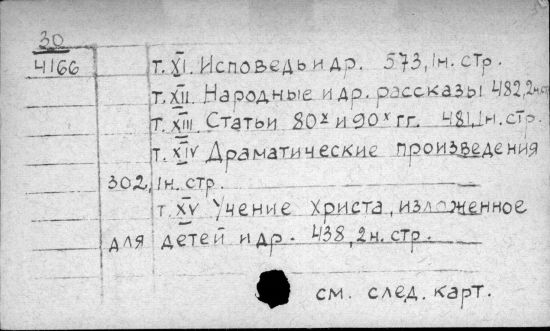 30
4166
т. XI. Исповедь и др. 573, 1н. стр.
т. XII Народные и др. рассказы 482, 2н. стр
т. XIII Статьи 80х и 90х гг. 481, 1н. стр.
т. XIV Драматические произведения
302, 1н. стр.
т. XV Учение Христа, изложенное
для детей и др. 438, 2н. стр.
см. след. карт.